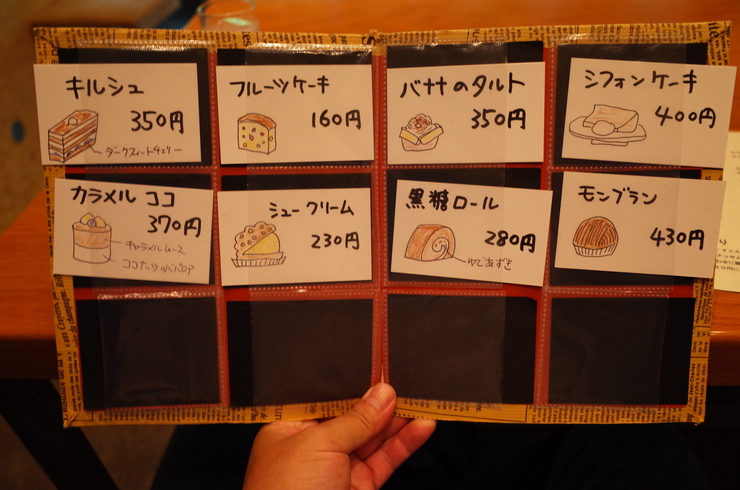 キルシュ
350円
ダークスイートチェリー
フルーツケーキ
160円
バナナのタルト
350円
シフォンケーキ
400円
カラメル ココ
370円
キャラメルムース
ココナッツのババロア
シュークリーム
230円
黒糖ロール
280円
ゆであずき
モンブラン
430円